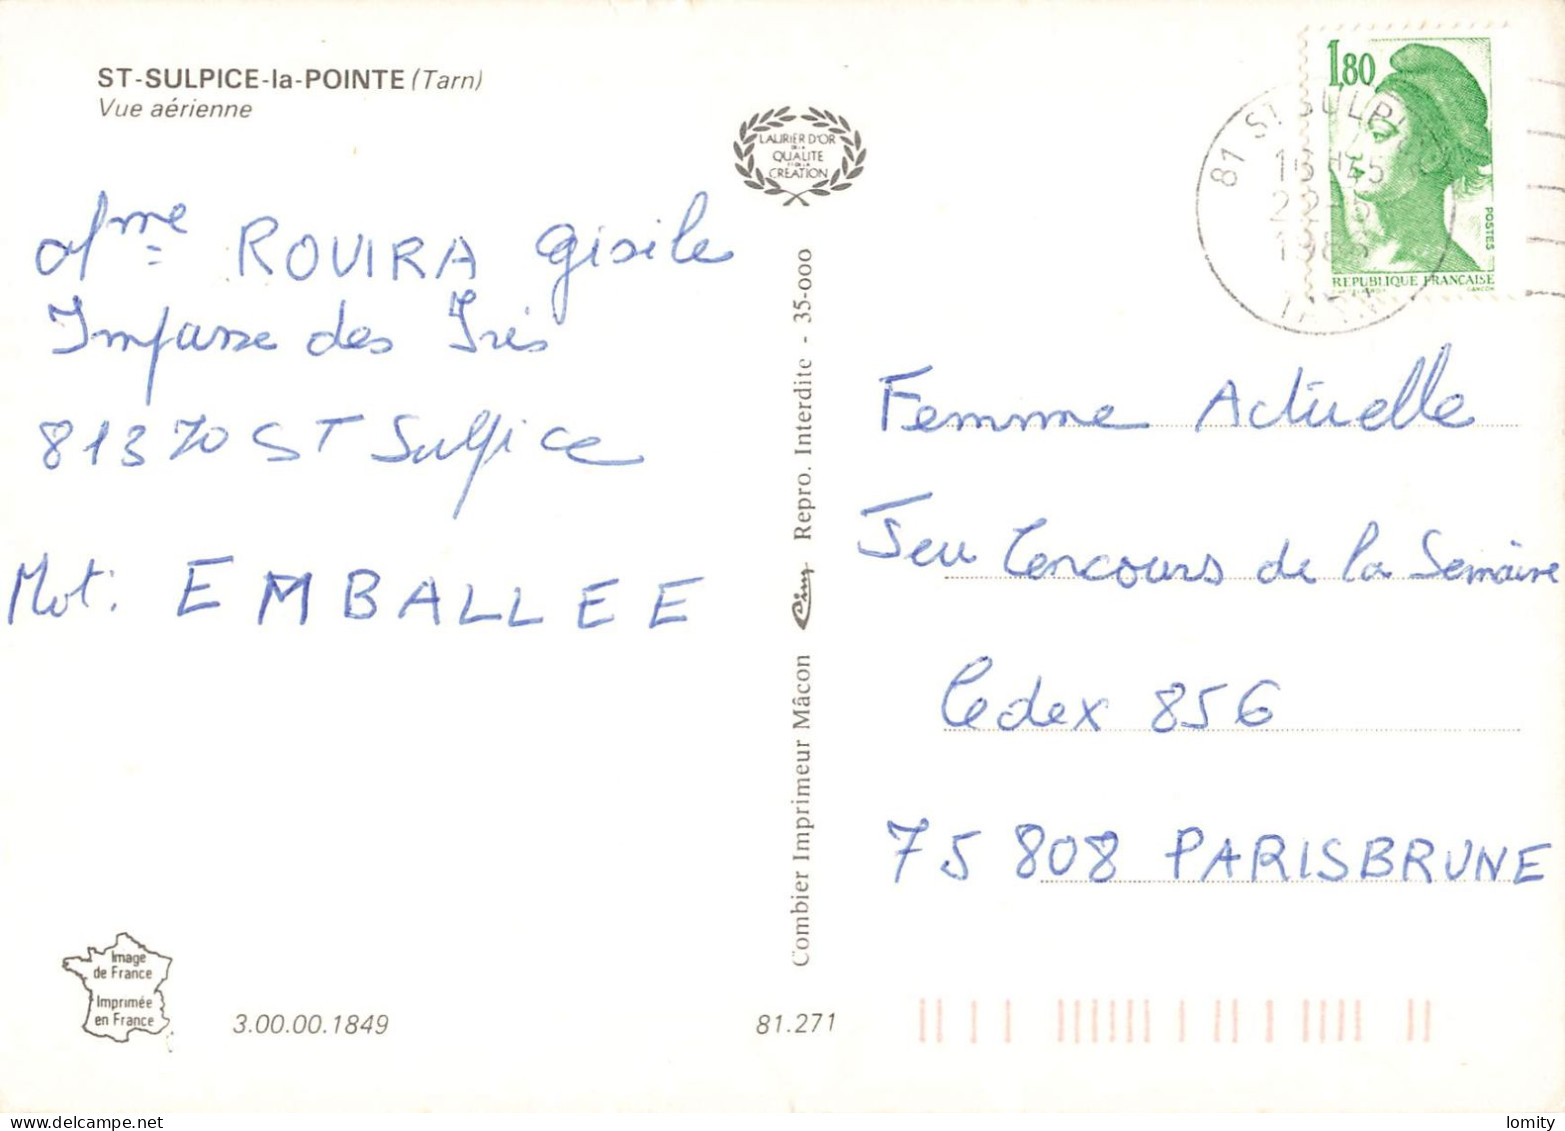 ST-SULPICE-la-POINTE (Tarn)
Vue aérienne
LAURIER D'OR
DE LA
QUALITE
ET DE LA
CREATION
Mme ROUIRA Gisile
Impasse des Iris
81370 ST Sulpice
Mot: EMBALLEE
Combier Imprimeur Mâcon Cim Repro. Interdite - 35-000
1,80
POSTES
REPUBLIQUE FRANCAISE
81 ST SULPICE
16H45
22-5
1986
TARN
Femme Actuelle
Jeu Concours de la Semaine
Cedex 856
75 808 PARISBRUNE
Image
de France
Imprimée
en France
3.00.00.1849
81.271
lomity